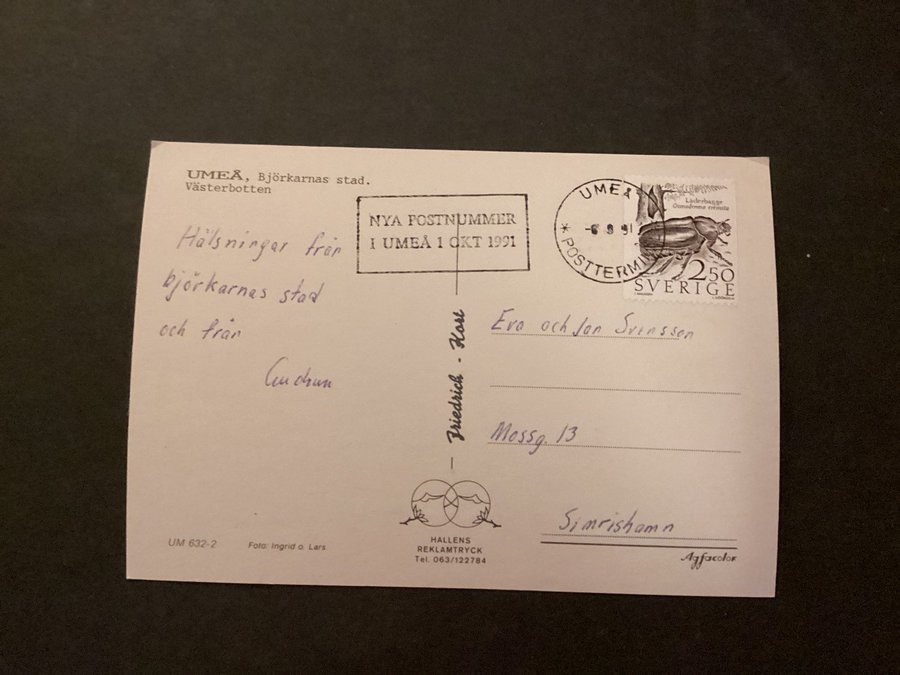 UMEÅ, Björkarnas stad.
Västerbotten
NYA POSTNUMMER
I UMEÅ 1 OKT 1991
UMEÅ
-6 9 91
* POSTTERMIN
Läderbagge
Osmoderma eremita
2.50
SVERIGE
Hälsningar från
björkarnas stad
och från
Gudrun
Friedrich - Kort
Eva och Jan Svensson
Mossg. 13
Simrishamn
UM 632-2
Foto: Ingrid o. Lars
HALLENS
REKLAMTRYCK
Tel. 063/122784
Agfacolor